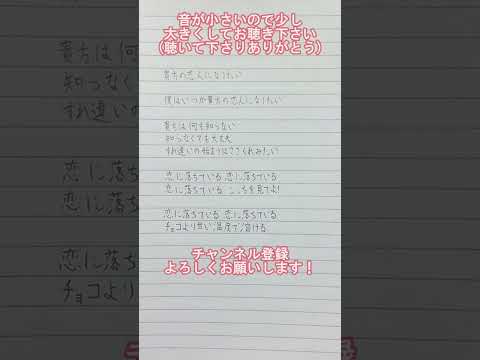 音が小さいので少し
大きくしてお聴き下さい
(聴いて下さりありがとう)
貴方の恋人になりたい
僕はいつか貴方の恋人になりたい
貴方は何も知らない
知らなくても大丈夫
すれ違いの始まりはささくれみたい
恋に落ちている 恋に落ちている
恋に落ちている こっちを見てよ!
恋に落ちている 恋に落ちている
チョコより甘い温度で溶ける
チャンネル登録
よろしくお願いします!